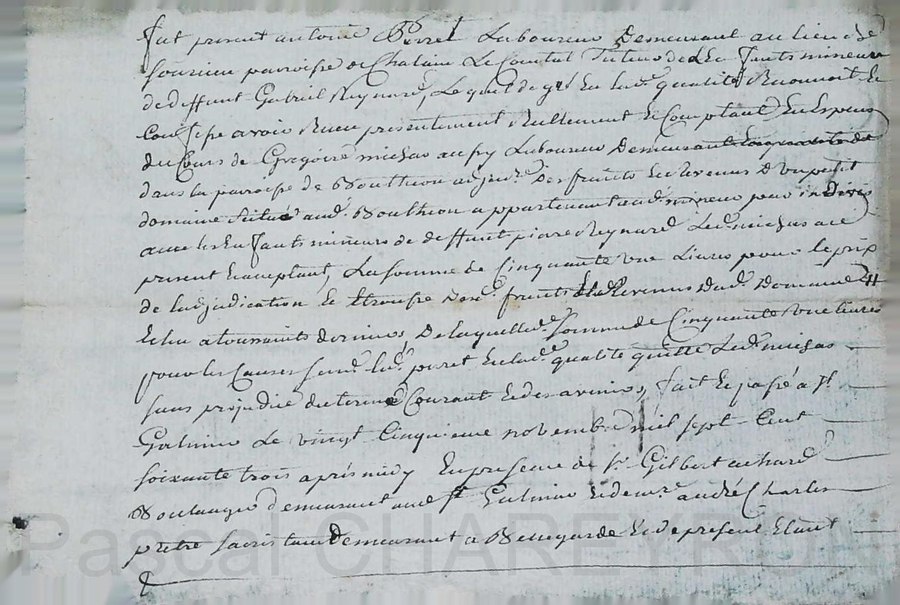 fut present antoine Perret Laboureur Demeurant au lieu de
fourieu parroisse de Chalain Le Comtal Tuteur de des Enfants mineurs
de deffunt Gabriel Reynard, Lequel de gré En lad. qualité Reconnoit Et
Confesse avoir Receu presentement Réellement Et Comptant En Espèces
du Cours de Grégoire michas Laboureur Demeurant
dans la parroisse de Boutheon Des fruits Et revenus D'un petit
domaine Situé aud. Boutheon appartenant auxd. mineurs pour indivis
avec les Enfants mineurs de deffunt piere Reynard Led. michas ace
present Et acceptant, La somme de Cinquante une Livres pour le prix
de Ladjudication Et Etrousse Desd. fruits Et Revenus Dud. Domaine
Echu a toussaints dernier, De laquelle somme de Cinquante une livres
pour les Causes led. perret En lad. qualité quitte Led. michas
sans prejudice du terme Courant Et des avenirs, fait Et passé a St
Galmier Le vingt Cinquieme novembre mil sept Cent
soixante trois après midy En presence de Sr Gilbert achard
Boulanger Demeurant aud. St Galmier Et de mre andré Charles
prêtre sacristain Demeurant a Bellegarde Et de présent Etant
Pascal CHAREYRON